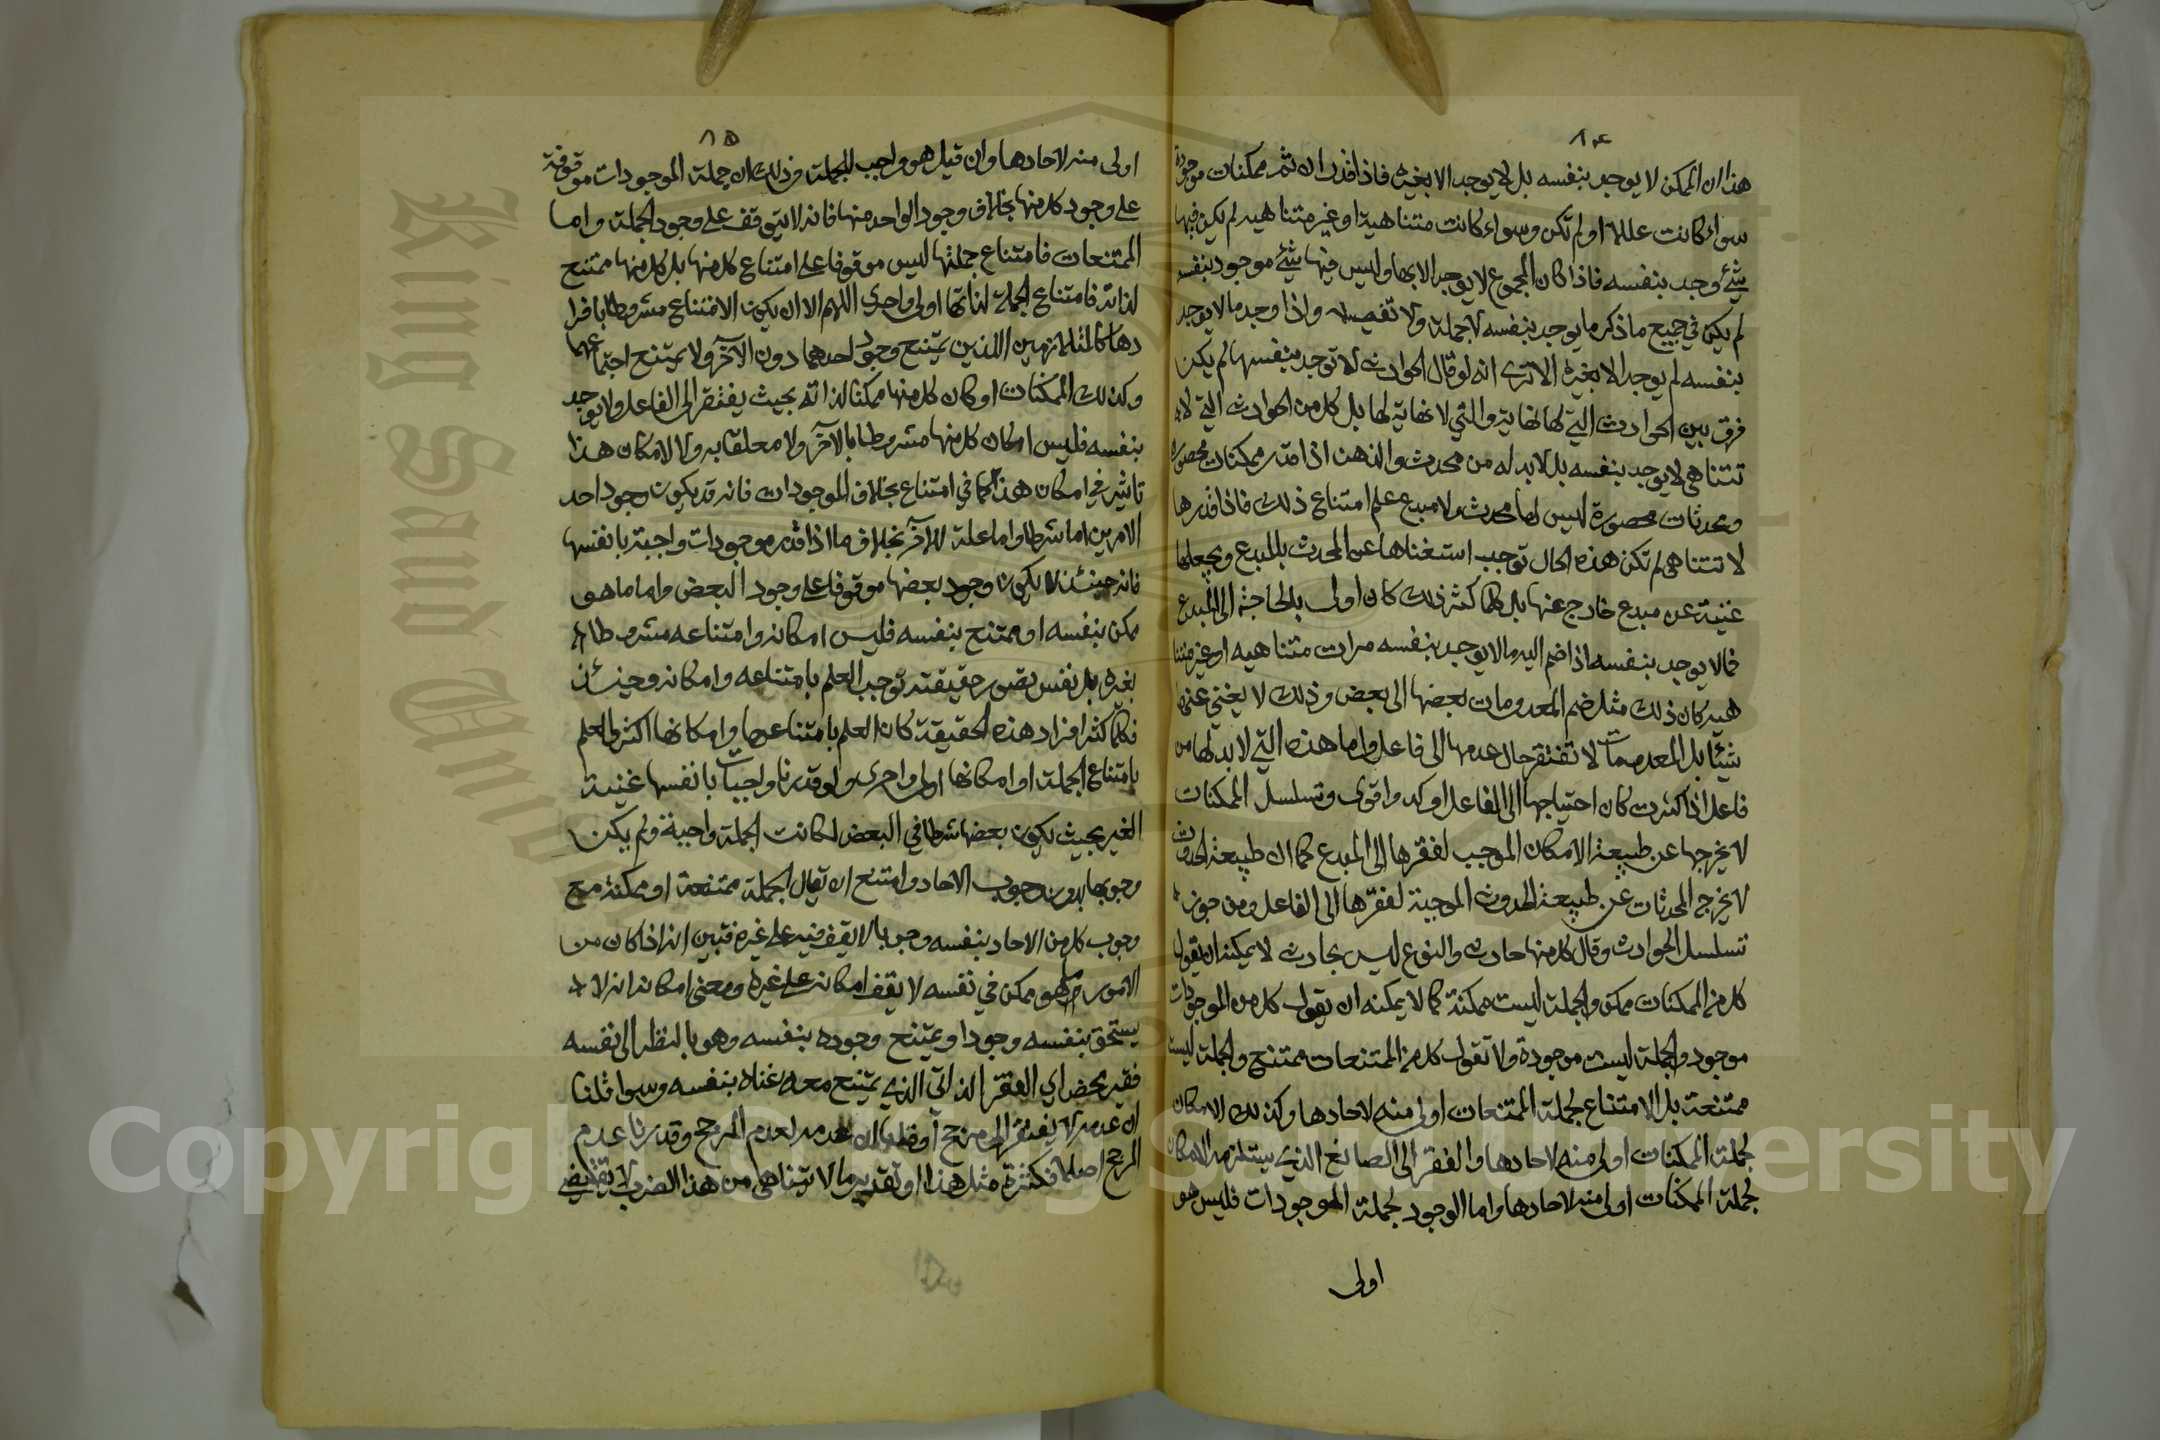 ٨٤
هذا ان الممكن لا يوجد بنفسه بل لا يوجد الا بغيره فاذا قدر ان ثم ممكنات موجودة
سواء كانت عللا او لم تكن وسواء كانت متناهية او غير متناهيه لم يكن فيها
شئ وجد بنفسه فاذا كان المجموع لا يوجد الا بها وليس فيها شئ موجود بنفسه
لم يكن في جميع ما ذكر ما يوجد بنفسه لا جملة ولا تفصيلا واذا وجد ما لا يوجد
بنفسه لم يوجد الا بغيره الا ترى انه لو قال الحوادث لا توجد بنفسها لم يكن
فرق بين الحوادث التي لها نهاية والتي لا نهاية لها بل كل من الحوادث التي لا
تتناهى لا يوجد بنفسه بل لا بد له من محدث والذهن اذا قدر ممكنات محصورة
ومحدثات محصورة ليس لها محدث ولا مبدع علم امتناع ذلك فاذا قدرها
لا تتناهى لم تكن هذه الحال توجب استغناها عن المحدث بالمبدع ويجعلها
غنية عن مبدع خارج عنها بل كلما كثر ذلك كان اولى بالحاجة الى المبدع
فما لا يوجد بنفسه اذا ضم اليه ما لا يوجد بنفسه مرات متناهيه او غير متنا
هيه كان ذلك مثل ضم المعدومات بعضها الى بعض وذلك لا يغني عنها
شيئا بل المعدومات لا تفتقر حال عدمها الى فاعل واما هذه التي لا بد لها من
فاعل اذا كثرت كان احتياجها الى الفاعل اوكد واقوى وتسلسل الممكنات
لا يخرجها عن طبيعة الامكان الموجب لفقرها الى المبدع كما ان طبيعة الحدوث
لا يخرج المحدثات عن طبيعة الحدوث الموجبة لفقرها الى الفاعل ومن جوز
تسلسل الحوادث وقال كل منها حادث والنوع ليس بحادث لا يمكنه ان يقول
كل من الممكنات ممكن والجملة ليست ممكنة كما لا يمكنه ان يقول كل من الموجودات
موجود والجملة ليست موجودة ولا تقول كل من الممتنعات ممتنع والجملة ليست
ممتنعة بل الامتناع لجملة الممتنعات اولى منه لاحادها وكذلك الامكان
لجملة الممكنات اولى منه لاحادها والفقر الى الصانع الذي يستلزمه الامكان
لجملة الممكنات اولى منه لاحادها واما الوجود لجملة الموجودات فليس هو
اولى
٨٥
اولى منه لاحادها وان قيل هو واجب للجملة وذلك ان جملة الموجودات موقوفة
على وجود كل منها بخلاف وجود الواحد منها فانه لا يتوقف على وجود الجملة واما
الممتنعات فامتناع جملتها ليس موقوفا على امتناع كل منها بل كل منها ممتنع
لذاته فامتناع الجملة لذاتها اولى واحرى اللهم الا ان يكون الامتناع مشروطا بافرا
دها كالمتلازمين اللذين يمتنع وجود احدهما دون الآخر ولا يمتنع اجتماعهما
وكذلك الممكنات او كان كل منها ممكنا لذاته بحيث يفتقر الى الفاعل ولا يوجد
بنفسه فليس امكان كل منها مشروطا بالآخر ولا معلقا به ولا لامكان هذا
تاثير في امكان هذا كما في امتناع بخلاف الموجودات فانه قد يكون وجود احد
الامرين اما شرطا واما علة للآخر بخلاف ما اذا قدر موجودات واجبة بانفسها
فانه حينئذ لا يكون وجود بعضها موقوفا على وجود البعض واما ما هو
ممكن بنفسه او ممتنع بنفسه فليس امكانه وامتناعه مشروطا
بغيره بل نفس تصور حقيقته توجب العلم بامتناعه وامكانه وحينئذ
فكلما كثر افراد هذه الحقيقة كان العلم بامتناعها وامكانها اكثر والعلم
بامتناع الجملة او امكانها اولى واحرى ولو قدرنا واجبات بانفسها غنية
الغير بحيث يكون بعضها شرطا في البعض لكانت الجملة واجبة ولم يكن
وجوبها بدون وجوب الاحاد وامتنع ان يقال الجملة ممتنعة او ممكنة مع
وجوب كل من الاحاد بنفسه وجوبا لا يقف فيه على غيره فتبين انه اذا كان من
الامور ما هو ممكن في نفسه لا يقف امكانه على غيره ومعنى امكانه انه لا
يستحق بنفسه وجودا ويمتنع وجوده بنفسه وهو بالنظر الى نفسه
فقير محض اي الفقر الذاتي الذي يمتنع معه غناه بنفسه وسوا قلنا
ان عدمه لا يفتقر الى مرجح او قلنا ان عدمه لعدم المرجح وقدرنا عدم
المرجح اصلا فكثرة مثل هذا او تقدير ما لا يتناهى من هذا الضرب لا يقتضي